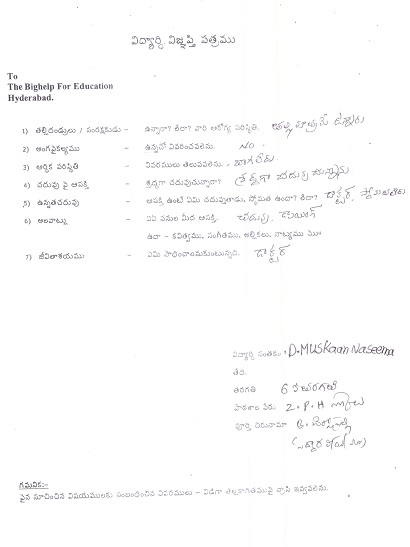 విద్యార్థి విజ్ఞప్తి పత్రము
To
The Bighelp For Education
Hyderabad.
1) తల్లిదండ్రులు / సంరక్షకుడు - ఉన్నారా? లేదా? వారి ఆరోగ్య పరిస్థితి. తల్లి మాత్రమే ఉన్నారు
2) అంగవైకల్యము - ఉన్నచో వివరించవలెను. NO.
3) ఆర్థిక పరిస్థితి - వివరములు తెలుపవలెను. బాగలేదు.
4) చదువు పై ఆసక్తి - శ్రద్ధగా చదువుచున్నారా? శ్రద్ధగా చదువుచున్నాను
5) ఉన్నతచదువు - ఆసక్తి ఉంటే ఏమి చదువుతాడు, స్తోమత ఉందా? లేదా? డాక్టర్, స్తోమతలేదు
6) అలవాట్లు - ఏఏ పనుల మీద ఆసక్తి. చదువు,
ఉదా - కవిత్వము, సంగీతము, అల్లికలు, నాట్యము మొ॥
7) జీవితాశయము - ఏమి సాధించాలనుకుంటున్నది. డాక్టర్
విద్యార్థి సంతకం: D.MUSKaan Naseema
తేది.
తరగతి 6 వ తరగతి
పాఠశాల పేరు Z.P.H స్కూలు
పూర్తి చిరునామా
గమనిక:-
పైన సూచించిన విషయములకు సంబంధించిన వివరములు - విడిగా తెల్లకాగితముపై వ్రాసి ఇవ్వవలెను.